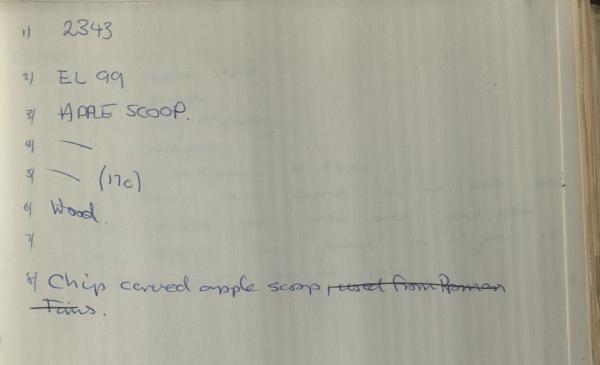 1) 2343
2) EL 99
3) APPLE SCOOP.
4) —
5) — (17c)
6) Wood.
7)
8) Chip carved apple scoop, used from Roman
Times.